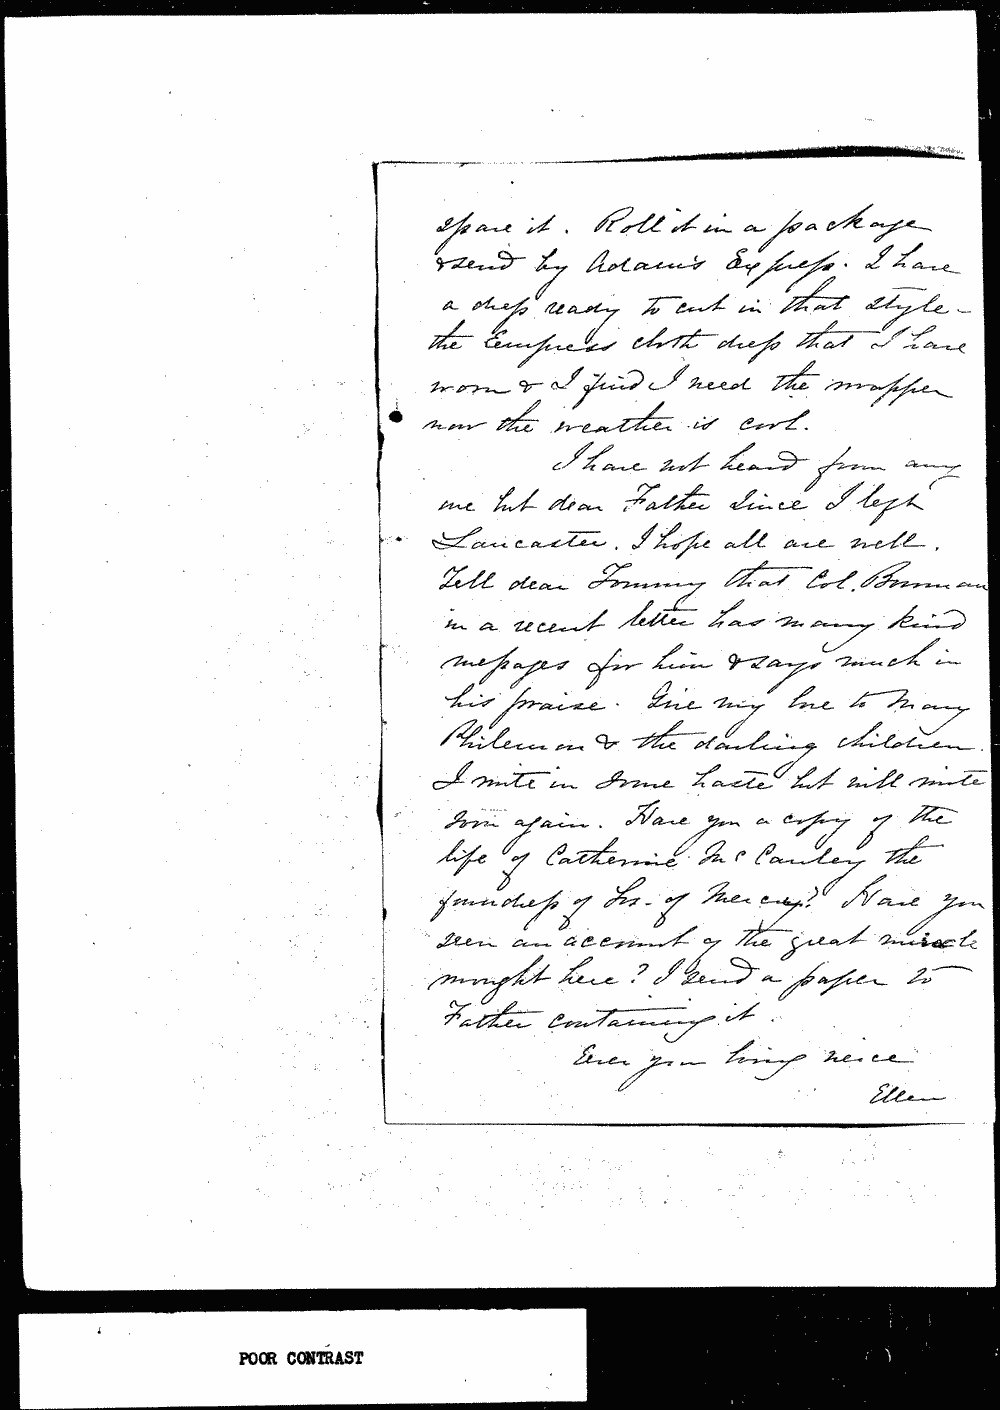 spare it. Roll it in a package
& send by Adams Express. I have
a dress ready to cut in that style -
the Empress cloth dress that I have
worn & I find I need the wrapper
now the weather is cool.
I have not heard from any
one but dear Father since I left
Lancaster. I hope all are well.
Tell dear Tommy that Col.
in a recent letter has many kind
messages for him & says much in
his praise. Give my love to Mary
Philemon & the darling children.
I write in some haste but will write
soon again. Have you a copy of the
life of Catherine McCauley the
foundress of Srs. of Mercy? Have you
seen an account of the great miracle
wrought here? I send a paper to
Father containing it.
Ever your loving niece
Ellen
POOR CONTRAST